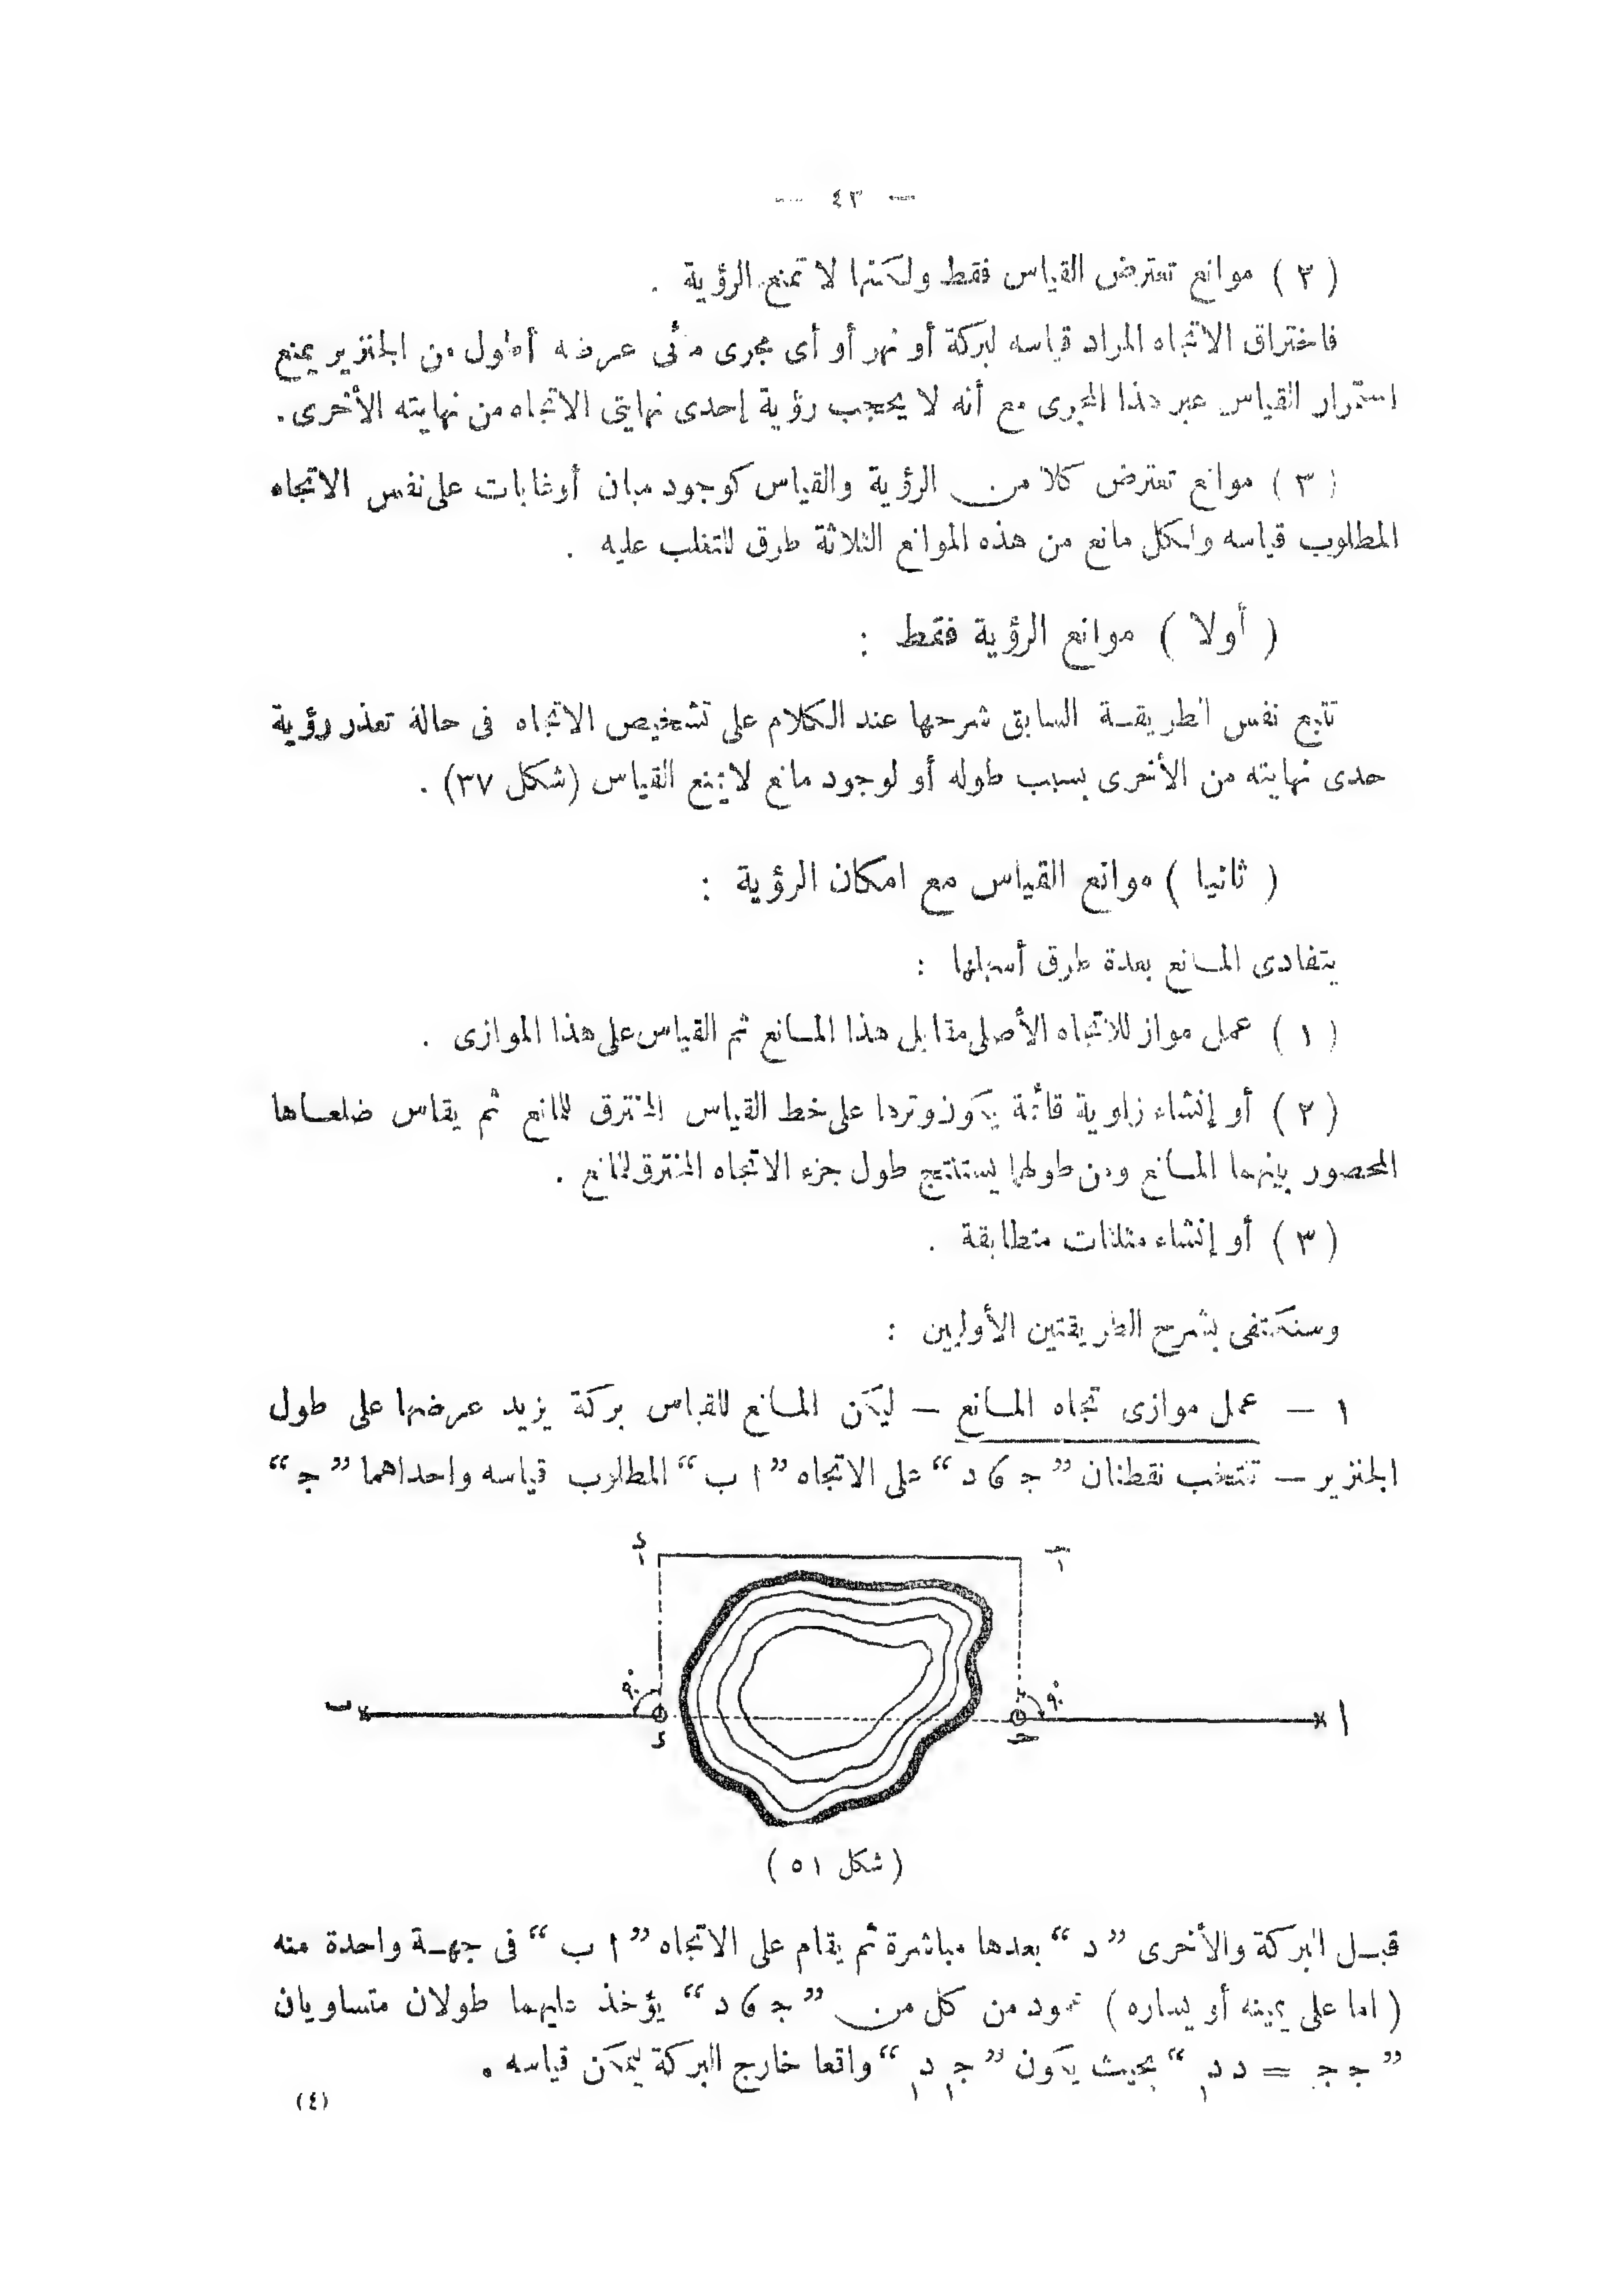 — ٤٣ —
( ٢ ) موانع تعترض القياس فقط ولكنها لا تمنع الرؤية .
فاختراق الاتجاه المراد قياسه لبركة أو نهر أو أى مجرى مائى عرضه أطول من الجنزير يمنع
استمرار القياس عبر هذا المجرى مع أنه لا يحجب رؤية إحدى نهايتى الاتجاه من نهايته الأخرى .
( ٣ ) موانع تعترض كلا من الرؤية والقياس كوجود مبان أو غابات على نفس الاتجاه
المطلوب قياسه ولكل مانع من هذه الموانع الثلاثة طرق للتغلب عليه .
( أولا ) موانع الرؤية فقط :
تتبع نفس الطريقة السابق شرحها عند الكلام على تشخيص الاتجاه فى حالة تعذر رؤية
حدى نهايته من الأخرى بسبب طوله أو لوجود مانع لا يمنع القياس (شكل ٣٧) .
( ثانيا ) موانع القياس مع امكان الرؤية :
يتفادى المانع بعدة طرق أسهلها :
( ١ ) عمل مواز للاتجاه الأصلى مقابل هذا المانع ثم القياس على هذا الموازى .
( ٢ ) أو إنشاء زاوية قائمة يكون وترها على خط القياس المخترق للمانع ثم يقاس ضلعاها
المحصور بينهما المانع ومن طولهما يستنتج طول جزء الاتجاه المخترق للمانع .
( ٣ ) أو إنشاء مثلثات متطابقة .
وسنكتفى بشرح الطريقتين الأوليين :
١ — عمل موازى تجاه المانع — ليكن المانع للقياس بركة يزيد عرضها على طول
الجنزير — تنتخب نقطتان ” جـ ، د “ على الاتجاه ” ا ب “ المطلوب قياسه واحداهما ” جـ “
د١ جـ١
٩٠° ٩٠°
ب د جـ ا
( شكل ٥١ )
قبل البركة والأخرى ” د “ بعدها مباشرة ثم يقام على الاتجاه ” ا ب “ فى جهة واحدة منه
( اما على يمينه أو يساره ) عمود من كل من ” جـ ، د “ يؤخذ عليهما طولان متساويان
” جـ جـ = د د١ “ بحيث يكون ” جـ١ د١ “ واقعا خارج البركة ليمكن قياسه .
(٤)